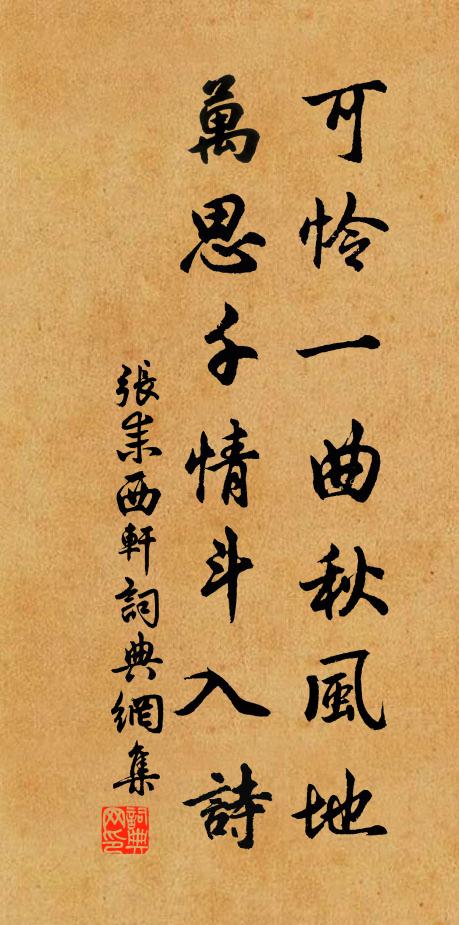 可怜一曲秋風地
萬思千情斗入詩
張耒西軒詞典網集
詞典网印